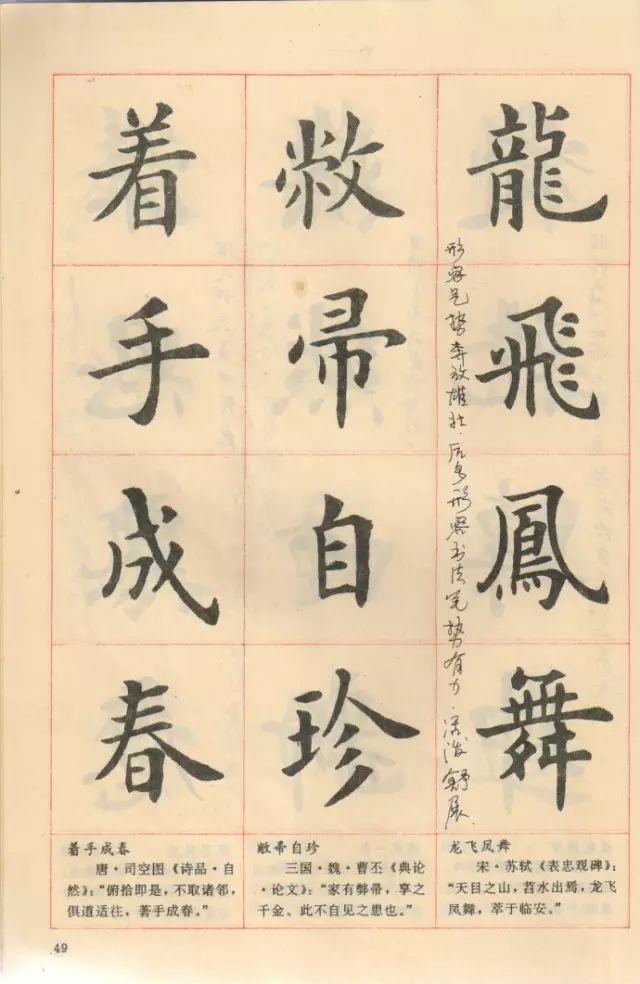 龍飛鳳舞
形容气势奔放雄壮.后多形容书法笔势有力.活泼舒展.
敝帚自珍
着手成春
龙飞凤舞
宋·苏轼《表忠观碑》：
“天目之山，苕水出焉，龙飞
凤舞，萃于临安。”
敝帚自珍
三国·魏·曹丕《典论
·论文》：“家有弊帚，享之
千金。此不自见之患也。”
着手成春
唐·司空图《诗品·自
然》：“俯拾即是，不取诸邻，
俱道适往，著手成春。”
49